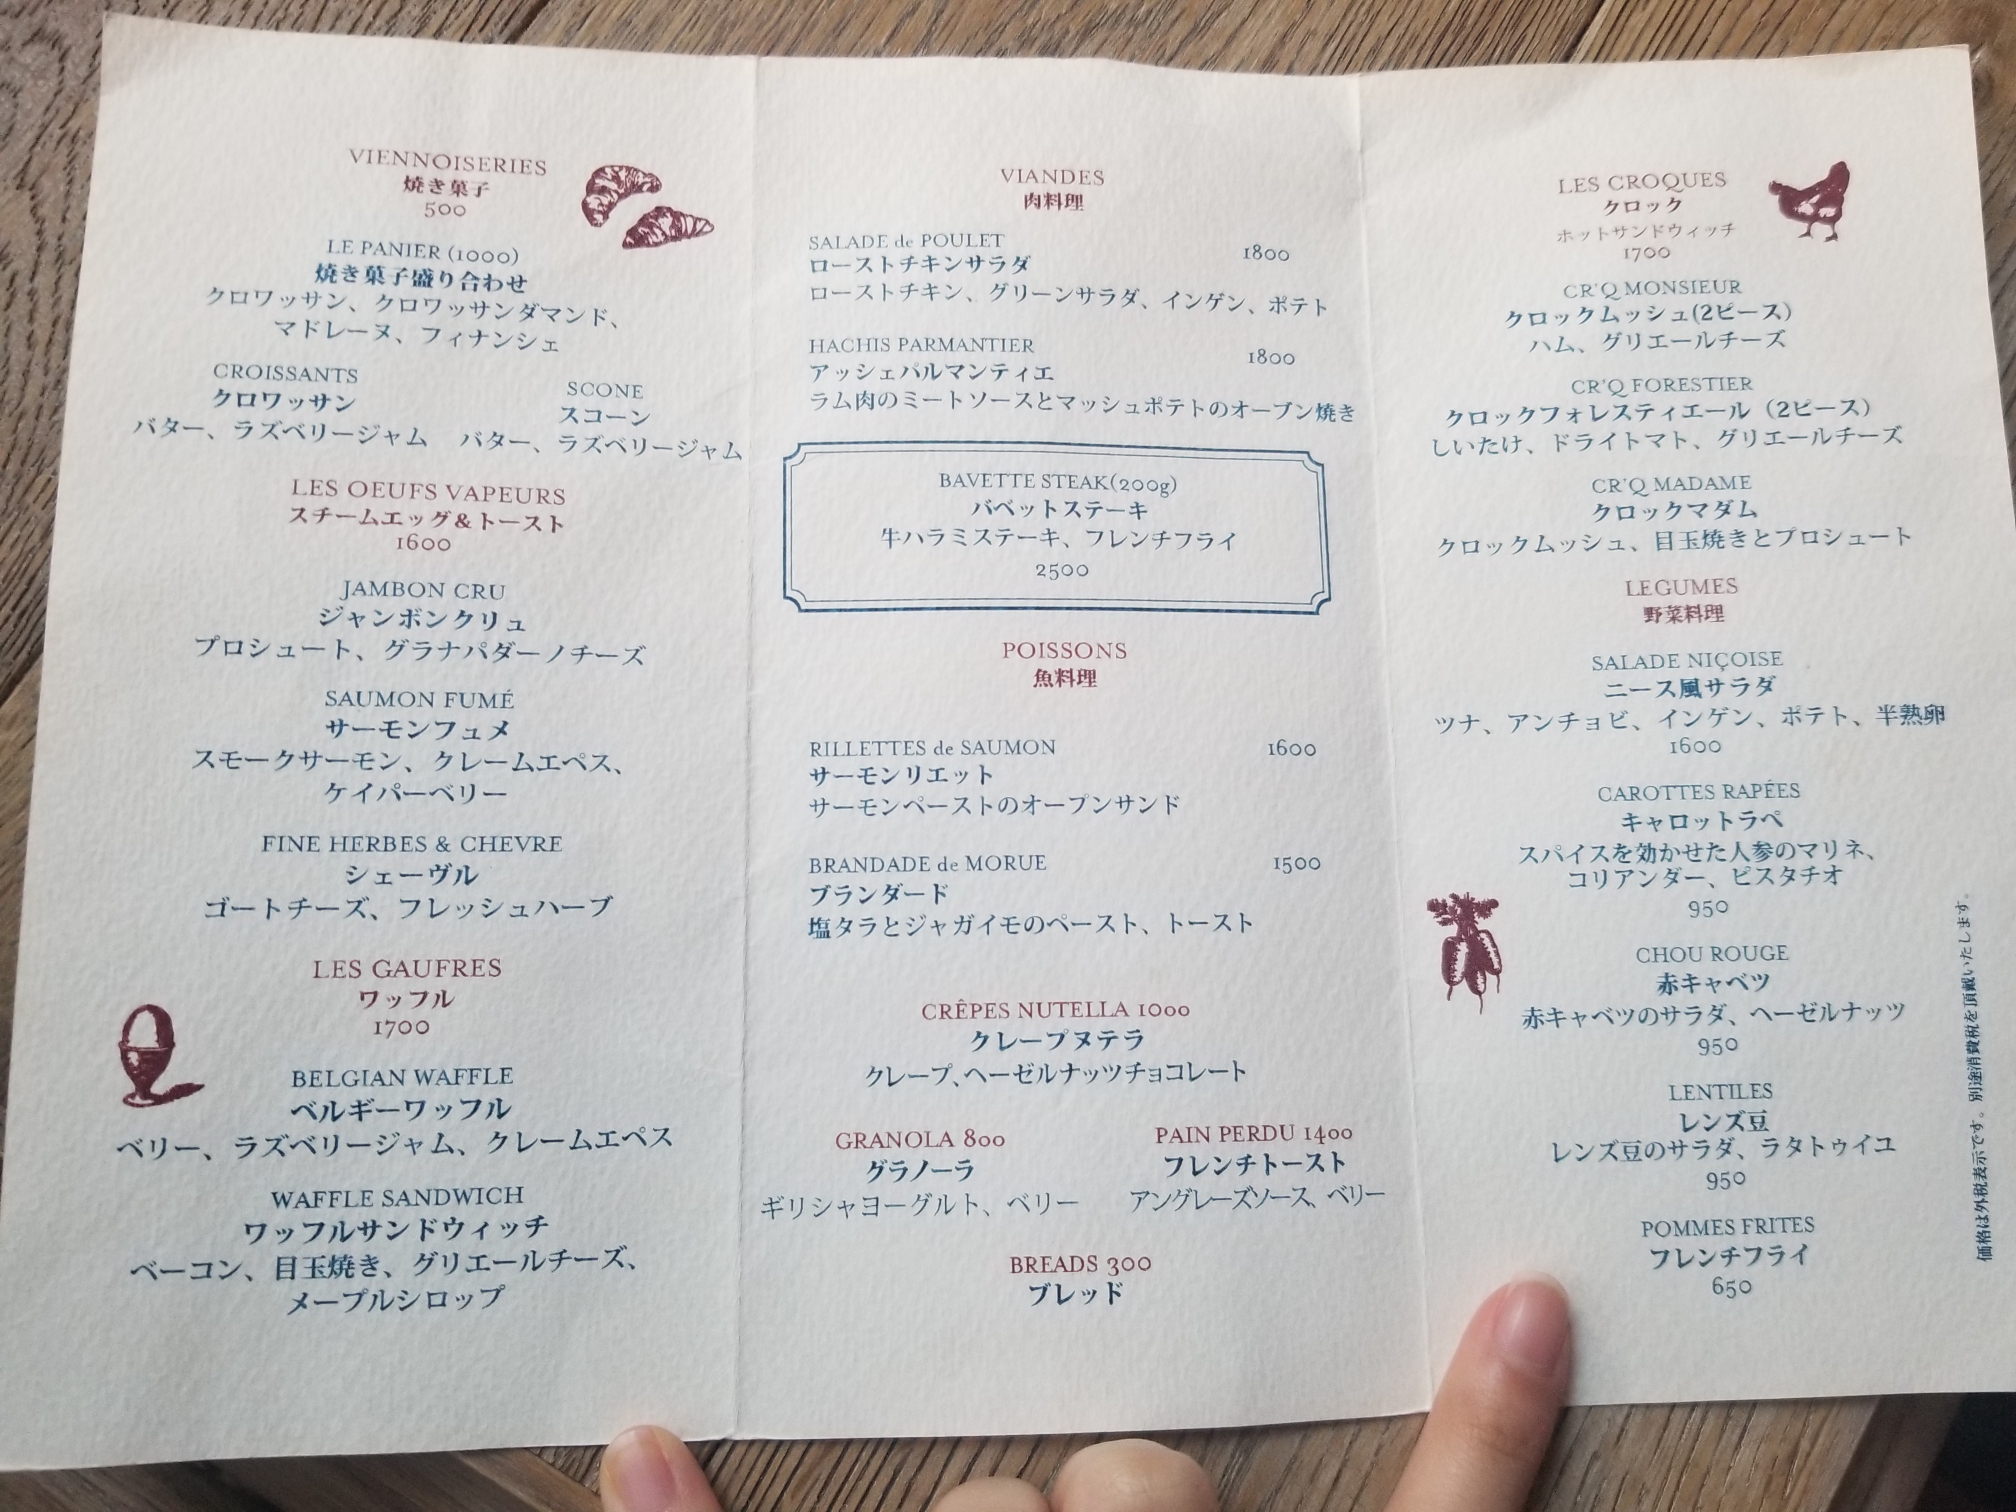 VIENNOISERIES
焼き菓子
500
LE PANIER (1000)
焼き菓子盛り合わせ
クロワッサン、クロワッサンダマンド、
マドレーヌ、フィナンシェ
CROISSANTS
クロワッサン
バター、ラズベリージャム
SCONE
スコーン
バター、ラズベリージャム
LES OEUFS VAPEURS
スチームエッグ&トースト
1600
JAMBON CRU
ジャンボンクリュ
プロシュート、グラナパダーノチーズ
SAUMON FUMÉ
サーモンフュメ
スモークサーモン、クレームエペス、
ケイパーベリー
FINE HERBES & CHEVRE
シェーヴル
ゴートチーズ、フレッシュハーブ
LES GAUFRES
ワッフル
1700
BELGIAN WAFFLE
ベルギーワッフル
ベリー、ラズベリージャム、クレームエペス
WAFFLE SANDWICH
ワッフルサンドウィッチ
ベーコン、目玉焼き、グリエールチーズ、
メープルシロップ
VIANDES
肉料理
SALADE de POULET 1800
ローストチキンサラダ
ローストチキン、グリーンサラダ、インゲン、ポテト
HACHIS PARMANTIER 1800
アッシェパルマンティエ
ラム肉のミートソースとマッシュポテトのオーブン焼き
BAVETTE STEAK(200g)
バベットステーキ
牛ハラミステーキ、フレンチフライ
2500
POISSONS
魚料理
RILLETTES de SAUMON 1600
サーモンリエット
サーモンペーストのオープンサンド
BRANDADE de MORUE 1500
ブランダード
塩タラとジャガイモのペースト、トースト
CRÊPES NUTELLA 1000
クレープヌテラ
クレープ、ヘーゼルナッツチョコレート
GRANOLA 800
グラノーラ
ギリシャヨーグルト、ベリー
PAIN PERDU 1400
フレンチトースト
アングレーズソース、ベリー
BREADS 300
ブレッド
LES CROQUES
クロック
ホットサンドウィッチ
1700
CR'Q MONSIEUR
クロックムッシュ(2ピース)
ハム、グリエールチーズ
CR'Q FORESTIER
クロックフォレスティエール（2ピース）
しいたけ、ドライトマト、グリエールチーズ
CR'Q MADAME
クロックマダム
クロックムッシュ、目玉焼きとプロシュート
LEGUMES
野菜料理
SALADE NIÇOISE
ニース風サラダ
ツナ、アンチョビ、インゲン、ポテト、半熟卵
1600
CAROTTES RAPÉES
キャロットラペ
スパイスを効かせた人参のマリネ、
コリアンダー、ピスタチオ
950
CHOU ROUGE
赤キャベツ
赤キャベツのサラダ、ヘーゼルナッツ
950
LENTILES
レンズ豆
レンズ豆のサラダ、ラタトゥイユ
950
POMMES FRITES
フレンチフライ
650
価格は外税表示です。別途消費税を頂戴いたします。